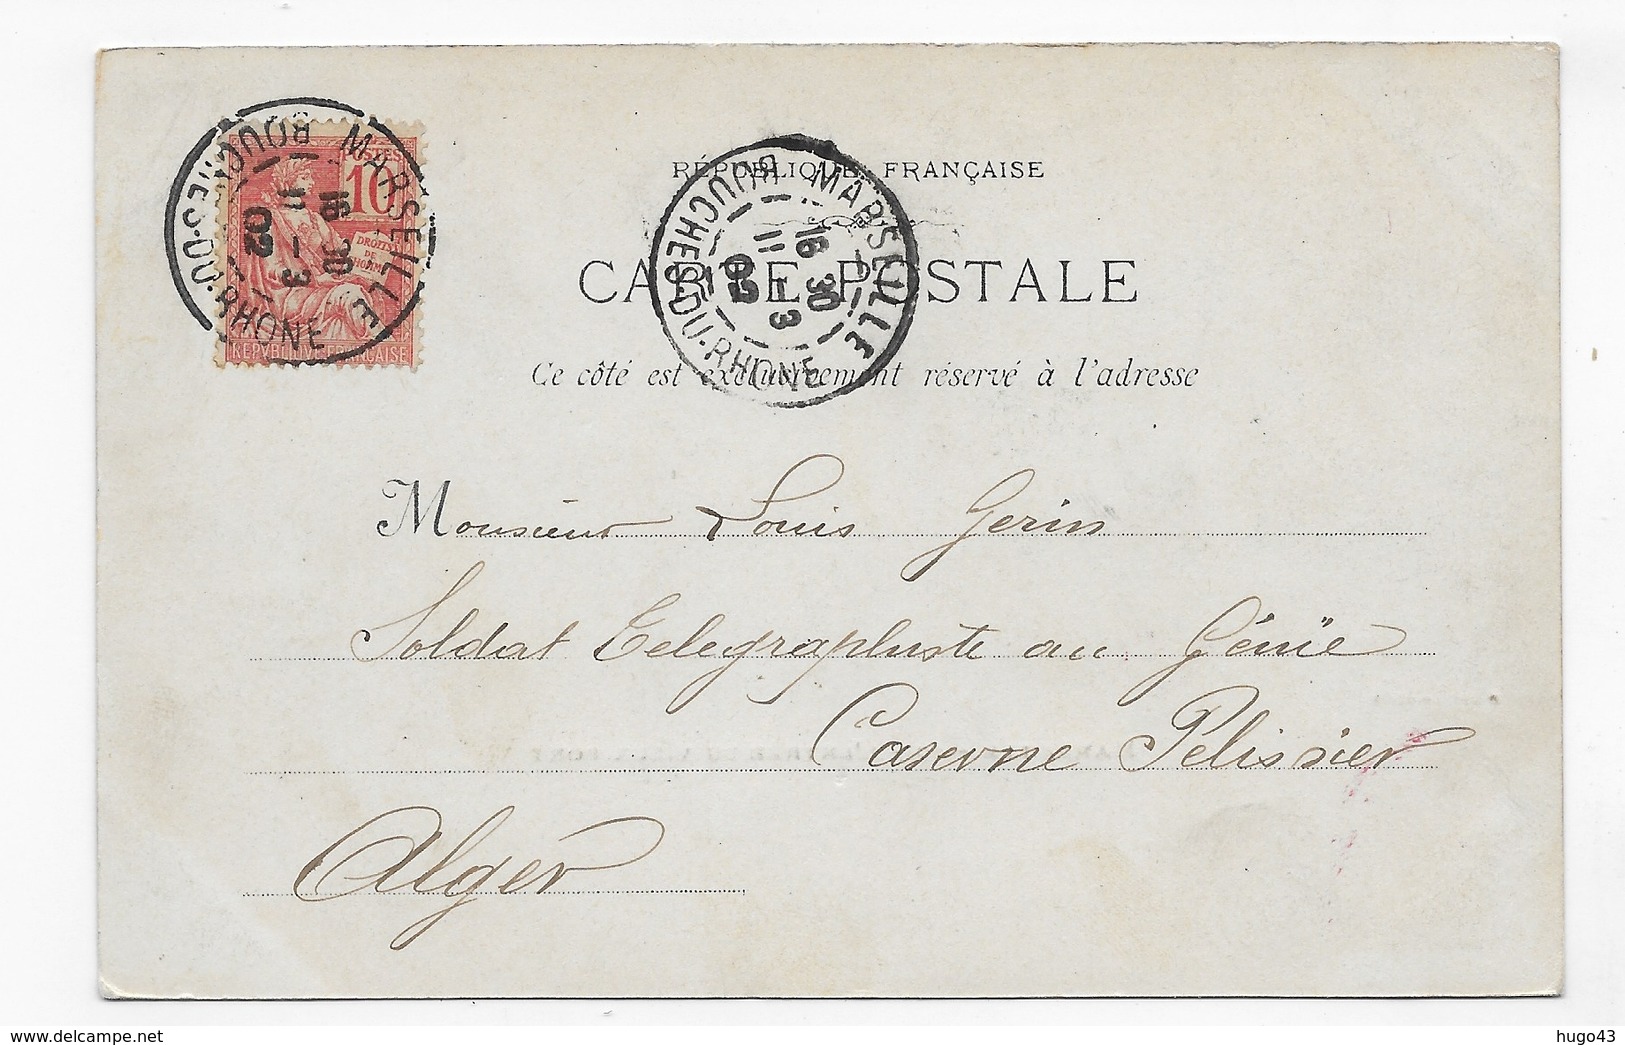 RÉPUBLIQUE FRANÇAISE
CARTE POSTALE
Ce côté est exclusivement réservé à l'adresse
POSTES
10
DROITS
DE
L'HOMME
REPVBLIQVE FRANCAISE
MARSEILLE
16 30
11 - 3
02
BOUCHES-DU-RHONE
MARSEILLE
16 30
11 - 3
02
BOUCHES-DU-RHONE
Monsieur Louis Gerin
Soldat Telegraphiste au Génie
Caserne Pelissier
Alger
delcampe.net
hugo43